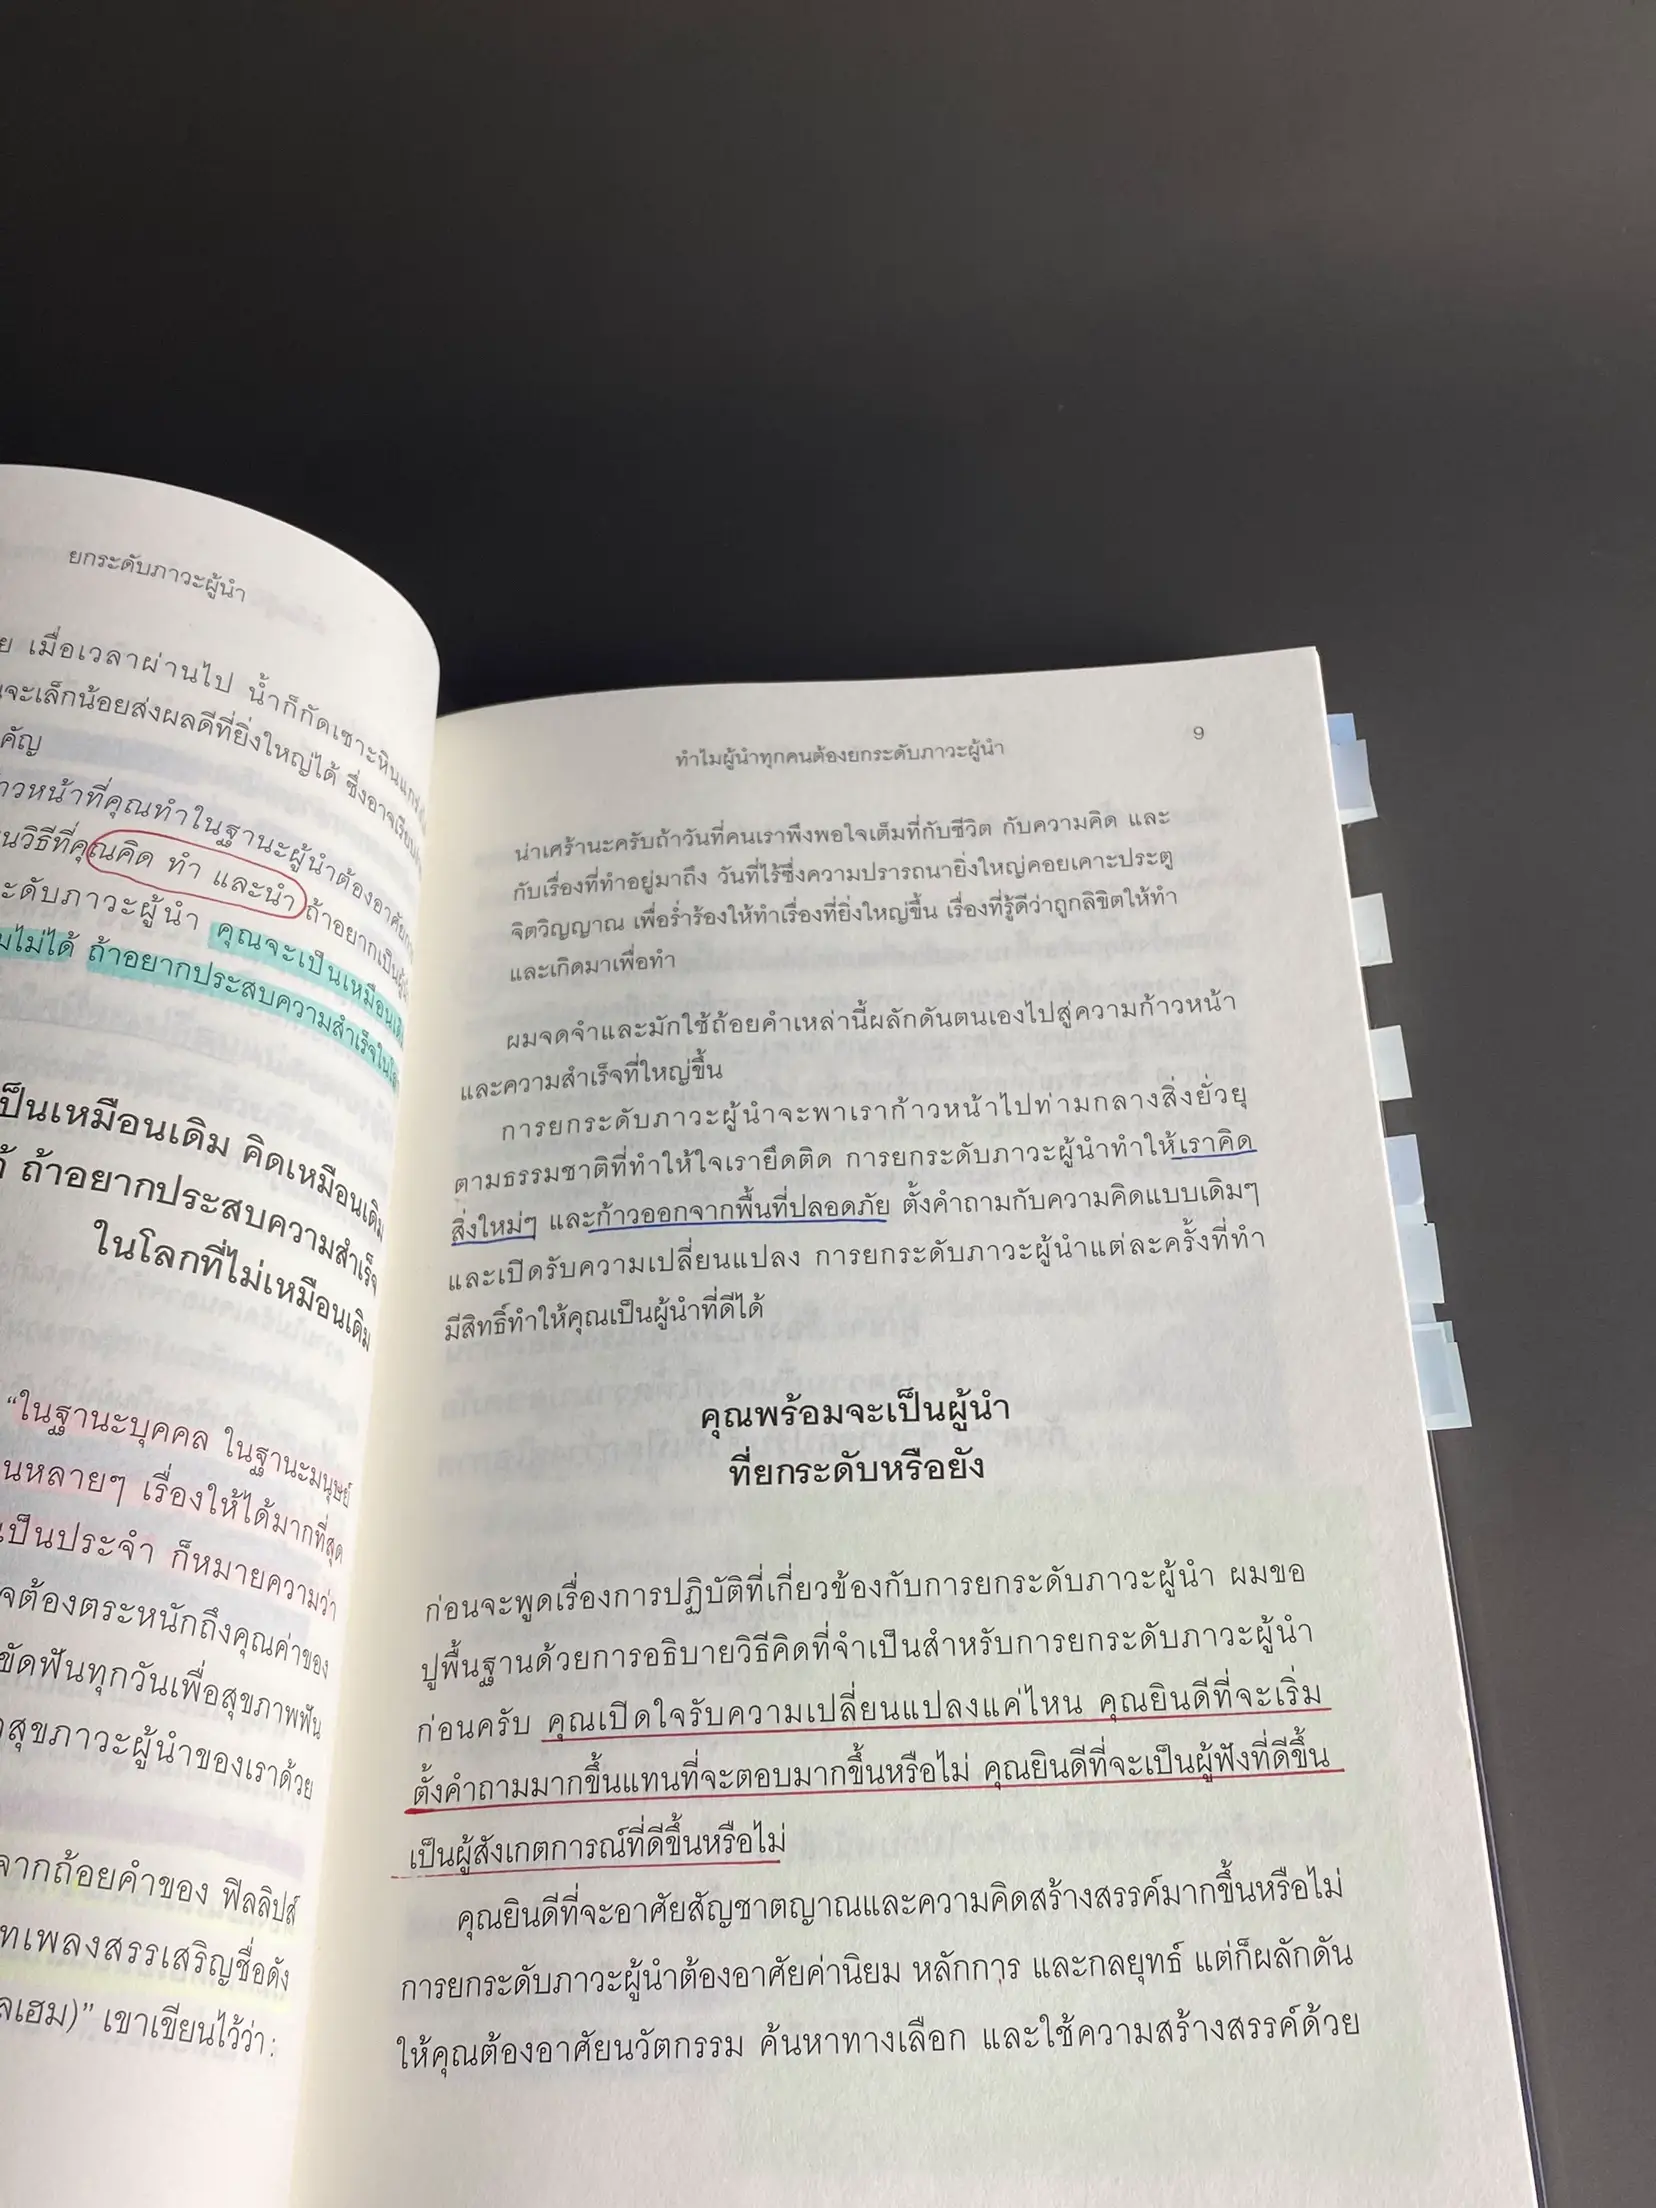 ยกระดับภาวะผู้นำ
เมื่อเวลาผ่านไป น้ำก็กัดเซาะหิน
จะเล็กน้อยส่งผลดีที่ยิ่งใหญ่ได้ ซึ่งอาจเรียก
คัญ
าวหน้าที่คุณทำในฐานะผู้นำต้องอาศัย
นวิธีที่คุณคิด ทำ และนำ ถ้าอยากเป็น
ะดับภาวะผู้นำ คุณจะเป็นเหมือน
มไม่ได้ ถ้าอยากประสบความสำเร็จใน
ป็นเหมือนเดิม คิดเหมือนเดิม
ถ้าอยากประสบความสำเร็จ
ในโลกที่ไม่เหมือนเดิม
“ในฐานะบุคคล ในฐานะมนุษย์
นหลายๆ เรื่องให้ได้มากที่สุด
เป็นประจำ ก็หมายความว่า
จต้องตระหนักถึงคุณค่าของ
ขัดฟันทุกวันเพื่อสุขภาพฟัน
าสุขภาวะผู้นำของเราด้วย
จากถ้อยคำของ ฟิลลิปส์
ทเพลงสรรเสริญชื่อดัง
ลเฮม)” เขาเขียนไว้ว่า:
ทำไมผู้นำทุกคนต้องยกระดับภาวะผู้นำ 9
น่าเศร้านะครับถ้าวันที่คนเราพึงพอใจเต็มที่กับชีวิต กับความคิด และ
กับเรื่องที่ทำอยู่มาถึง วันที่ไร้ซึ่งความปรารถนายิ่งใหญ่คอยเคาะประตู
จิตวิญญาณ เพื่อร่ำร้องให้ทำเรื่องที่ยิ่งใหญ่ขึ้น เรื่องที่รู้ดีว่าถูกลิขิตให้ทำ
และเกิดมาเพื่อทำ
ผมจดจำและมักใช้ถ้อยคำเหล่านี้ผลักดันตนเองไปสู่ความก้าวหน้า
และความสำเร็จที่ใหญ่ขึ้น
การยกระดับภาวะผู้นำจะพาเราก้าวหน้าไปท่ามกลางสิ่งยั่วยุ
ตามธรรมชาติที่ทำให้ใจเรายึดติด การยกระดับภาวะผู้นำทำให้เราคิด
สิ่งใหม่ๆ และก้าวออกจากพื้นที่ปลอดภัย ตั้งคำถามกับความคิดแบบเดิมๆ
และเปิดรับความเปลี่ยนแปลง การยกระดับภาวะผู้นำแต่ละครั้งที่ทำ
มีสิทธิ์ทำให้คุณเป็นผู้นำที่ดีได้
คุณพร้อมจะเป็นผู้นำ
ที่ยกระดับหรือยัง
ก่อนจะพูดเรื่องการปฏิบัติที่เกี่ยวข้องกับการยกระดับภาวะผู้นำ ผมขอ
ปูพื้นฐานด้วยการอธิบายวิธีคิดที่จำเป็นสำหรับการยกระดับภาวะผู้นำ
ก่อนครับ คุณเปิดใจรับความเปลี่ยนแปลงแค่ไหน คุณยินดีที่จะเริ่ม
ตั้งคำถามมากขึ้นแทนที่จะตอบมากขึ้นหรือไม่ คุณยินดีที่จะเป็นผู้ฟังที่ดีขึ้น
เป็นผู้สังเกตการณ์ที่ดีขึ้นหรือไม่
คุณยินดีที่จะอาศัยสัญชาตญาณและความคิดสร้างสรรค์มากขึ้นหรือไม่
การยกระดับภาวะผู้นำต้องอาศัยค่านิยม หลักการ และกลยุทธ์ แต่ก็ผลักดัน
ให้คุณต้องอาศัยนวัตกรรม ค้นหาทางเลือก และใช้ความสร้างสรรค์ด้วย